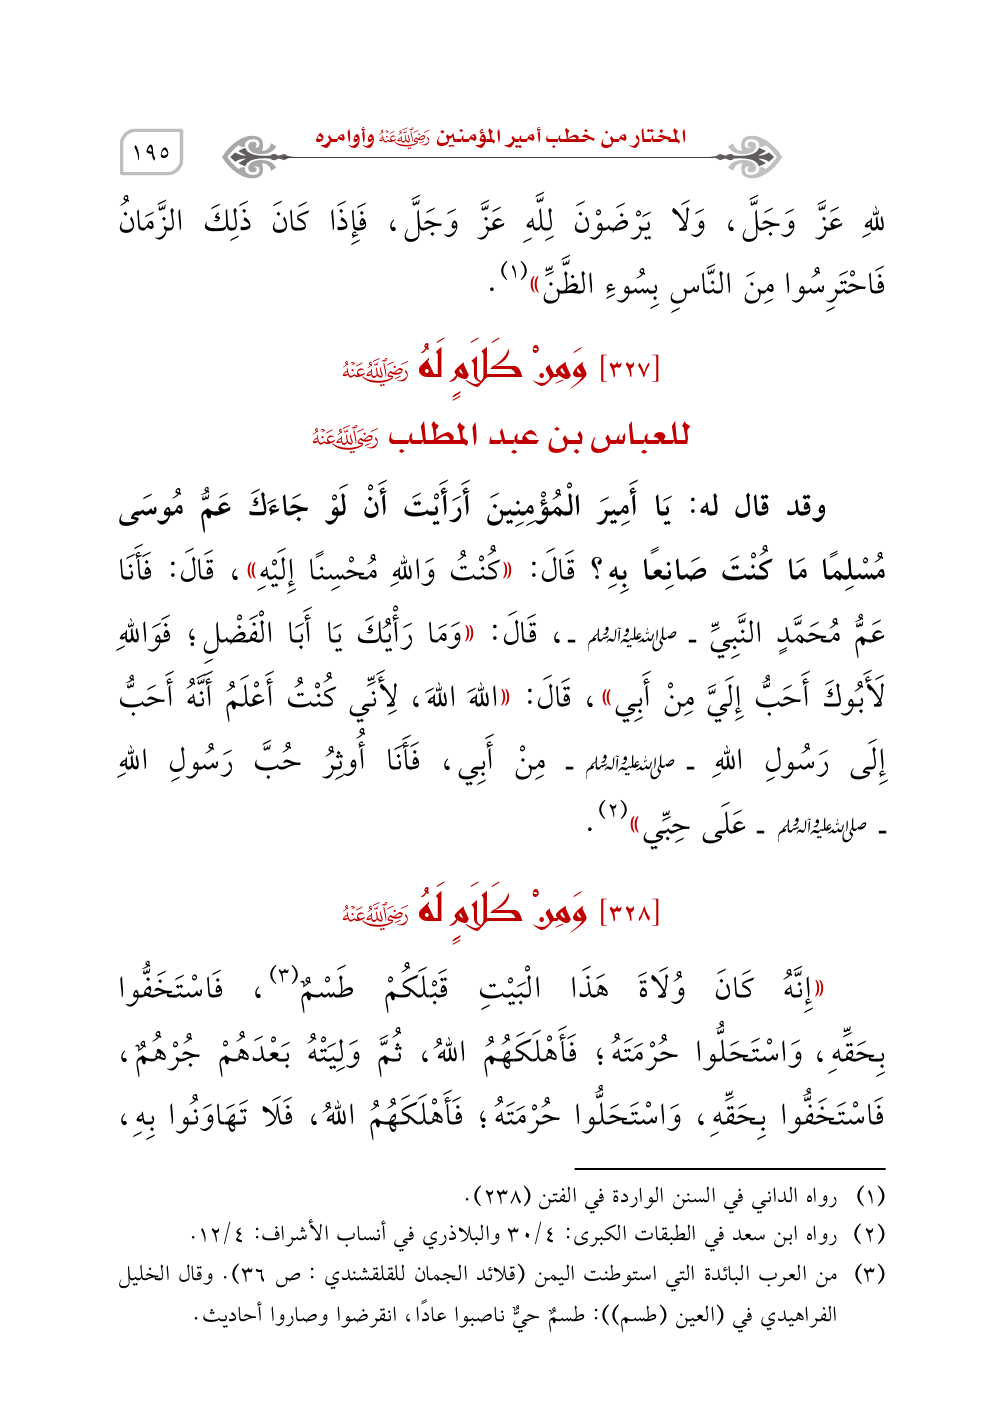 المختار من خطب أمير المؤمنين رَضِيَ اللَّهُ عَنْهُ وأوامره
١٩٥
للهِ عَزَّ وَجَلَّ، وَلَا يَرْضَوْنَ لِلَّهِ عَزَّ وَجَلَّ، فَإِذَا كَانَ ذَلِكَ الزَّمَانُ
فَاحْتَرِسُوا مِنَ النَّاسِ بِسُوءِ الظَّنِّ»(١).
[٣٢٧] وَمِنْ كَلَامٍ لَهُ رَضِيَ اللَّهُ عَنْهُ
للعباس بن عبد المطلب رَضِيَ اللَّهُ عَنْهُ
وقد قال له: يَا أَمِيرَ الْمُؤْمِنِينَ أَرَأَيْتَ أَنْ لَوْ جَاءَكَ عَمُّ مُوسَى
مُسْلِمًا مَا كُنْتَ صَانِعًا بِهِ؟ قَالَ: «كُنْتُ وَاللهِ مُحْسِنًا إِلَيْهِ»، قَالَ: فَأَنَا
عَمُّ مُحَمَّدٍ النَّبِيِّ ـ صلى الله عليه وآله وسلم ـ، قَالَ: «وَمَا رَأْيُكَ يَا أَبَا الْفَضْلِ؛ فَوَاللهِ
لَأَبُوكَ أَحَبُّ إِلَيَّ مِنْ أَبِي»، قَالَ: «اللهَ اللهَ، لِأَنِّي كُنْتُ أَعْلَمُ أَنَّهُ أَحَبُّ
إِلَى رَسُولِ اللهِ ـ صلى الله عليه وآله وسلم ـ مِنْ أَبِي، فَأَنَا أُوثِرُ حُبَّ رَسُولِ اللهِ
ـ صلى الله عليه وآله وسلم ـ عَلَى حِبِّي»(٢).
[٣٢٨] وَمِنْ كَلَامٍ لَهُ رَضِيَ اللَّهُ عَنْهُ
«إِنَّهُ كَانَ وُلَاةَ هَذَا الْبَيْتِ قَبْلَكُمْ طَسْمٌ(٣)، فَاسْتَخَفُّوا
بِحَقِّهِ، وَاسْتَحَلُّوا حُرْمَتَهُ؛ فَأَهْلَكَهُمُ اللهُ، ثُمَّ وَلِيَتْهُ بَعْدَهُمْ جُرْهُمٌ،
فَاسْتَخَفُّوا بِحَقِّهِ، وَاسْتَحَلُّوا حُرْمَتَهُ؛ فَأَهْلَكَهُمُ اللهُ، فَلَا تَهَاوَنُوا بِهِ،
(١) رواه الداني في السنن الواردة في الفتن (٢٣٨).
(٢) رواه ابن سعد في الطبقات الكبرى: ٣٠/٤ والبلاذري في أنساب الأشراف: ١٢/٤.
(٣) من العرب البائدة التي استوطنت اليمن (قلائد الجمان للقلقشندي : ص ٣٦). وقال الخليل
الفراهيدي في (العين (طسم)): طسمٌ حيٌّ ناصبوا عادًا، انقرضوا وصاروا أحاديث.